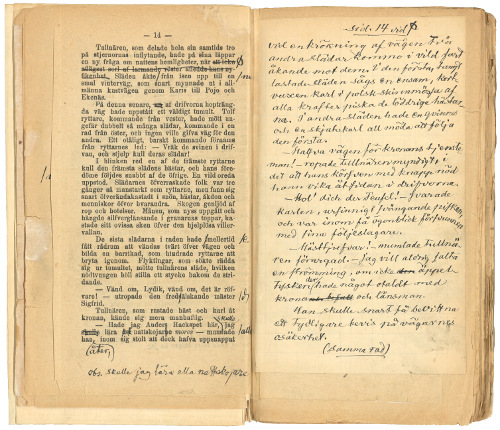 — 14 —
Tullnären, som delade hela sin samtids tro
på stjernornas inflytande, hade på sina läppar
en ny fråga om nattens hemligheter, när
fikenhet. Släden åkte från isen upp till en
smal vinterväg, som snart mynnade ut i all-
männa kustvägen genom Karis till Pojo och
Ekenäs.
På denna senare, af drifvorna hopträng-
da väg hade uppstått ett väldigt tumult. Tolf
ryttare, kommande från vester, hade mött un-
gefär dubbelt så många slädar, kommande i en
rad från öster, och ingen ville gifva väg för den
andra. Ett otåligt, barskt kommando förnams
från ryttarnes led: — Vräk de svinen i drif-
van, och stjelp kull deras slädar!
I blinken red en af de främste ryttarne
kull den främsta slädens häst, och hans före-
döme följdes snabbt af de öfriga. En vild oreda
uppstod. Slädarnes öfverraskade folk var tre
gånger så manstarkt som ryttarne, men fann sig
snart öfverändakastadt i snön, hästar, skodon och
menniskor öfver hvarandra. Skogen genljöd af
rop och hotelser. Månen, som nys uppgått och
hängde silfverglänsande i granarnes toppar, ka-
stade sitt ovissa sken öfver den hjelplösa viller-
vallan.
De sista slädarna i raden hade emellertid
fått rådrum att vändas tvärt öfver vägen och
bilda en barrikad, som hindrade ryttarne att
bryta igenom. Flyktingar, som sökte rädda
sig ur tumultet, mötte tullnärens släde, hvilken
nödtvungen höll stilla ett stycke bakom de stri-
dande.
— Vänd om, Lydik, vänd om, det är röf-
vare! — utropade den fredälskande mäster
Sigfrid.
Tullnären, som rustade häst och karl åt
kronan, kände sig mera manhaftig.
— Hade jag Anders Hackspet här, jag
skulle lära nattskojare — mumlade
han, inom sig stolt att dock hafva uppsnappat
(åter)
obs. skulle jag lära alla nattskojare
Sid. 14 vid
vid en krökning af vägen. Från
andra slädar kommo i vild fart
åkande mot dem. I den första, tungt
lastade släden sågs en ensam, kort-
vuxen karl i polsk skinnmössa af
alla krafter piska de lödriga hästar-
na. I andra släden hade en qvinna
och en skjutskarl all möda att följa
den första.
— Halfva vägen för kronans tjenste-
man! — ropade tullnären myndigt, i
det att hans körsven med knapp nöd
hann vika åt sidan i drifvorna.
— Hol' dich der Deufel! — svarade
karlen, ursinnigt svängande piskan,
och var inom få ögonblick försvunnen
med sina följeslagare.
— mumlade Tullnä-
ren förvägad. — Jag vill aldrig falla
en strömming, om icke den
Tysken hade något otaldt med
kronans och länsman.
Han skulle snart få bevittna
ett tydligare bevis på vägarnes
osäkerhet.
(Samma rad)